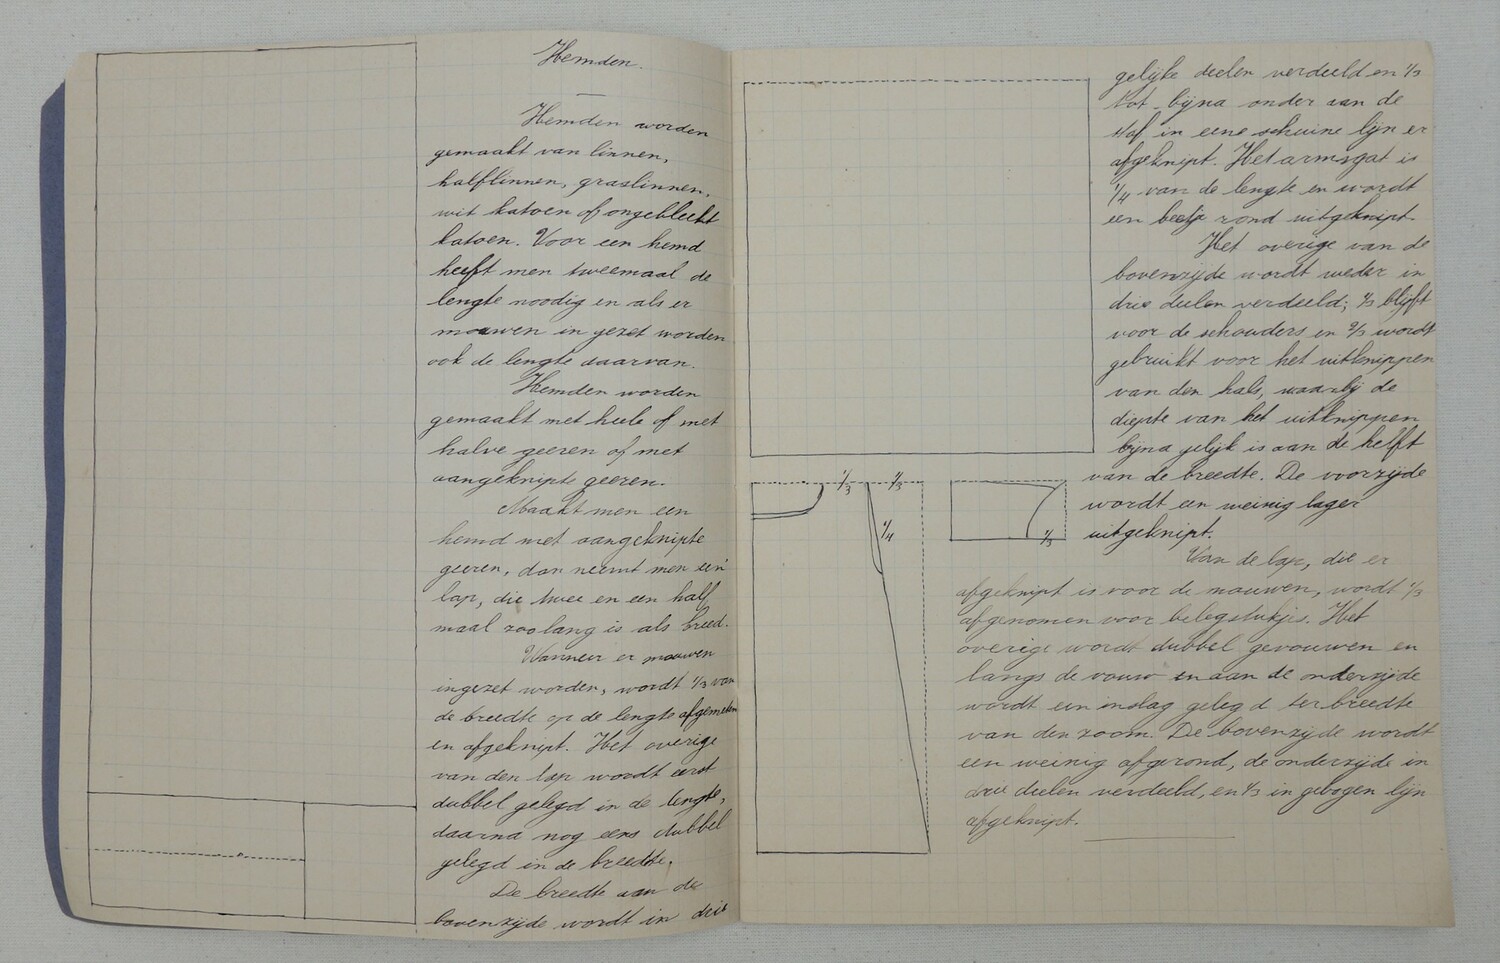 Hemden.
Hemden worden
gemaakt van linnen,
halflinnen, graslinnen,
wit katoen of ongebleekt
katoen. Voor een hemd
heeft men tweemaal de
lengte noodig en als er
mouwen in gezet worden
ook de lengte daarvan.
Hemden worden
gemaakt met heele of met
halve geeren of met
aangeknipte geeren.
Maakt men een
hemd met aangeknipte
geeren, dan neemt men één
lap, die twee en een half
maal zoolang is als breed.
Wanneer er mouwen
ingezet worden, wordt 1/3 van
de breedte op de lengte afgemeten
en afgeknipt. Het overige
van den lap wordt eerst
dubbel gelegd in de lengte,
daarna nog eens dubbel
gelegd in de breedte.
De breedte aan de
bovenzijde wordt in drie
gelijke deelen verdeeld en 1/3
tot bijna onder aan de
stof in eene schuine lijn er
afgeknipt. Het armsgat is
1/4 van de lengte en wordt
een beetje rond uitgeknipt.
Het overige van de
bovenzijde wordt weder in
drie deelen verdeeld; 1/3 blijft
voor de schouders en 2/3 wordt
gebruikt voor het uitknippen
van den hals, waarbij de
diepte van het uitknippen
bijna gelijk is aan de helft
van de breedte. De voorzijde
wordt een weinig lager
uitgeknipt.
1/3 1/3
1/4
1/3
Van de lap, die er
afgeknipt is voor de mouwen, wordt 1/3
afgenomen voor belegstukjes. Het
overige wordt dubbel gevouwen en
langs de vouw en aan de onderzijde
wordt een inslag gelegd ter breedte
van den zoom. De bovenzijde wordt
een weinig afgerond, de onderzijde in
drie deelen verdeeld, en 1/3 in gebogen lijn
afgeknipt.